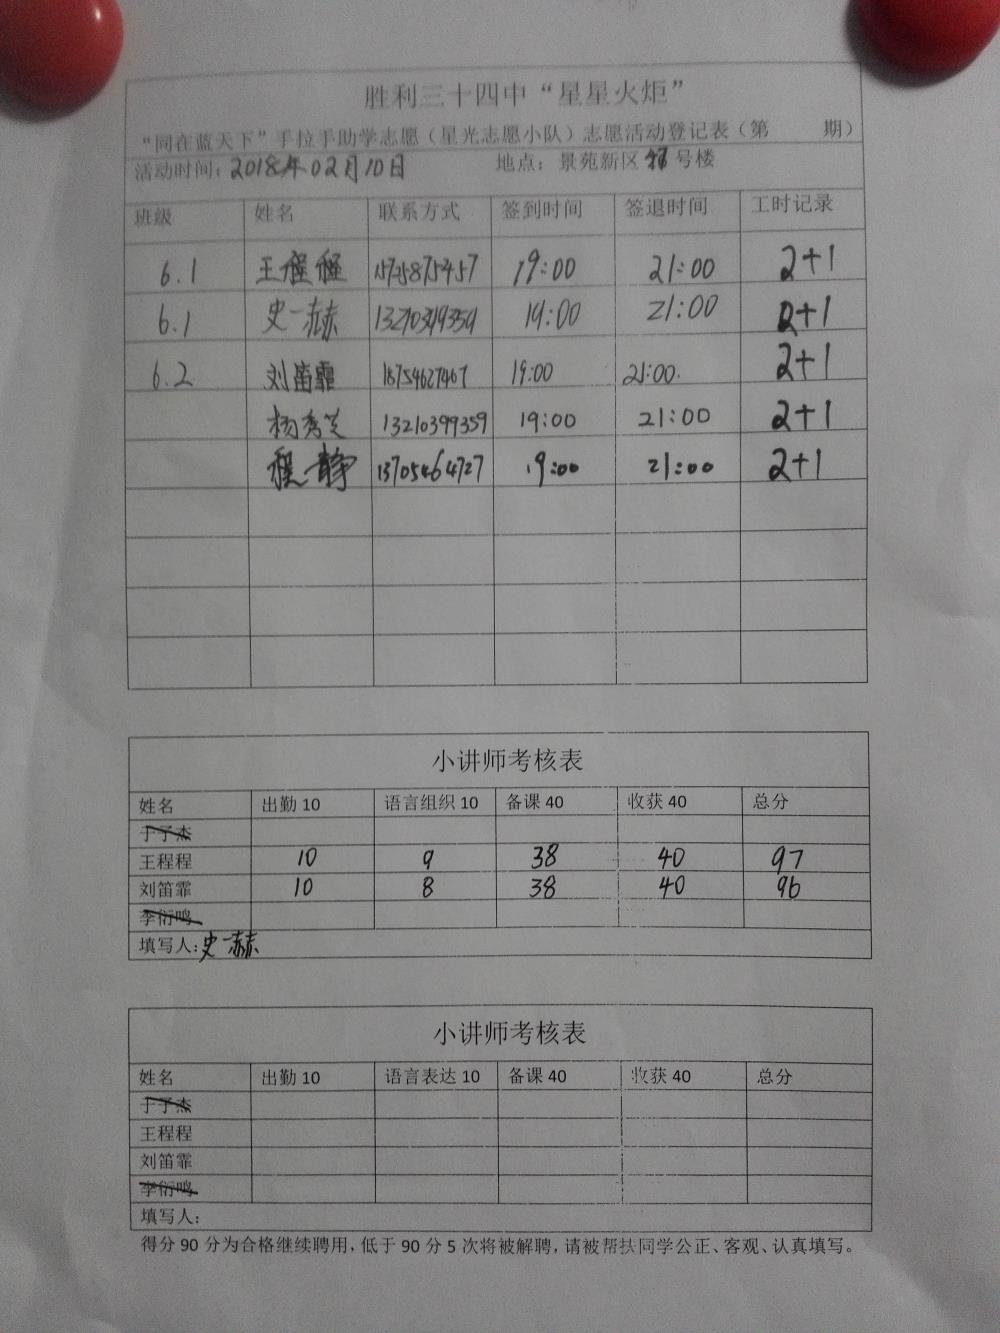 胜利三十四中“星星火炬”
“同在蓝天下”手拉手助学志愿（星光志愿小队）志愿活动登记表（第 期）
活动时间：2018年02月10日 地点：景苑新区 号楼
班级 姓名 联系方式 签到时间 签退时间 工时记录
6.1 王程程 15725875457 19:00 21:00 2+1
6.1 史一赫 19:00 21:00 2+1
6.2 刘笛霏 18754627467 19:00 21:00. 2+1
杨秀芝 13210399359 19:00 21:00 2+1
程静 13705464727 19:00 21:00 2+1
小讲师考核表
姓名 出勤 10 语言组织 10 备课 40 收获 40 总分
于子杰
王程程 10 9 38 40 97
刘笛霏 10 8 38 40 96
李衍鸣
填写人：史一赫
小讲师考核表
姓名 出勤 10 语言表达 10 备课 40 收获 40 总分
于子杰
王程程
刘笛霏
李衍鸣
填写人：
得分 90 分为合格继续聘用，低于 90 分 5 次将被解聘，请被帮扶同学公正、客观、认真填写。